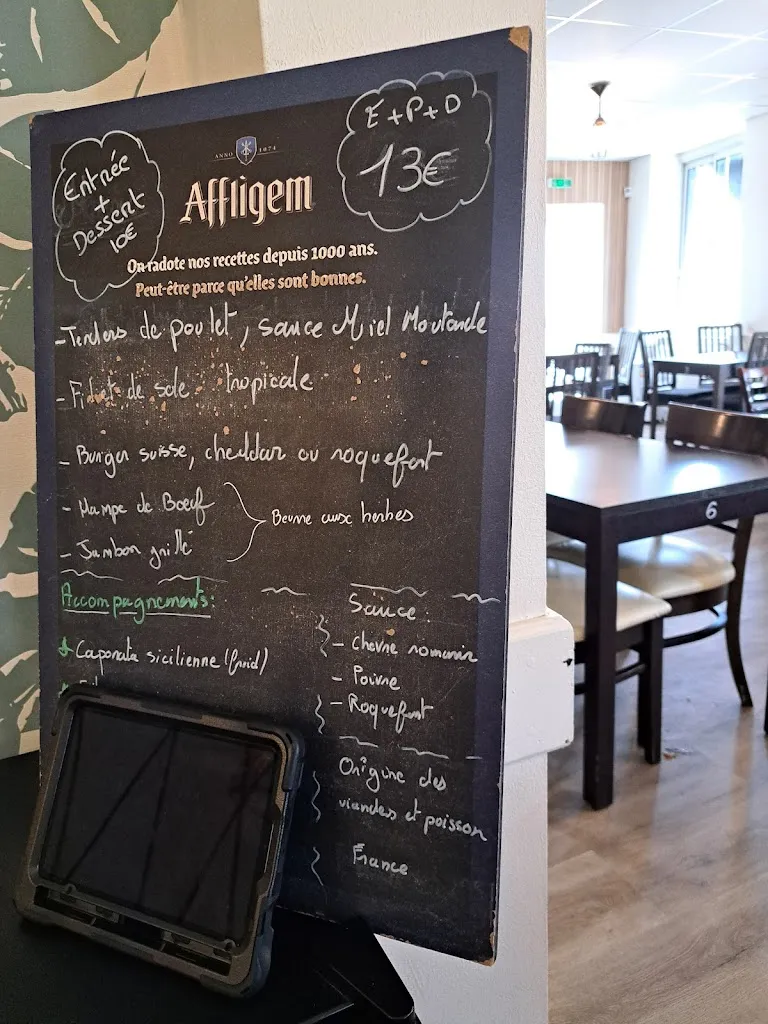 Entrée
+
Dessert
10€
E+P+D
13€
ANNO 1074
Affligem
On radote nos recettes depuis 1000 ans.
Peut-être parce qu'elles sont bonnes.
- Tenders de poulet, sauce Miel Moutarde
- Filet de sole tropicale
- Burger suisse, cheddar ou roquefort
- Hampe de Boeuf
- Jambon grillé
Beurre aux herbes
Accompagnements:
Caponata sicilienne (froid)
Sauce:
- Chèvre romarin
- Poivre
- Roquefort
Origine des
viandes et poisson
France
6